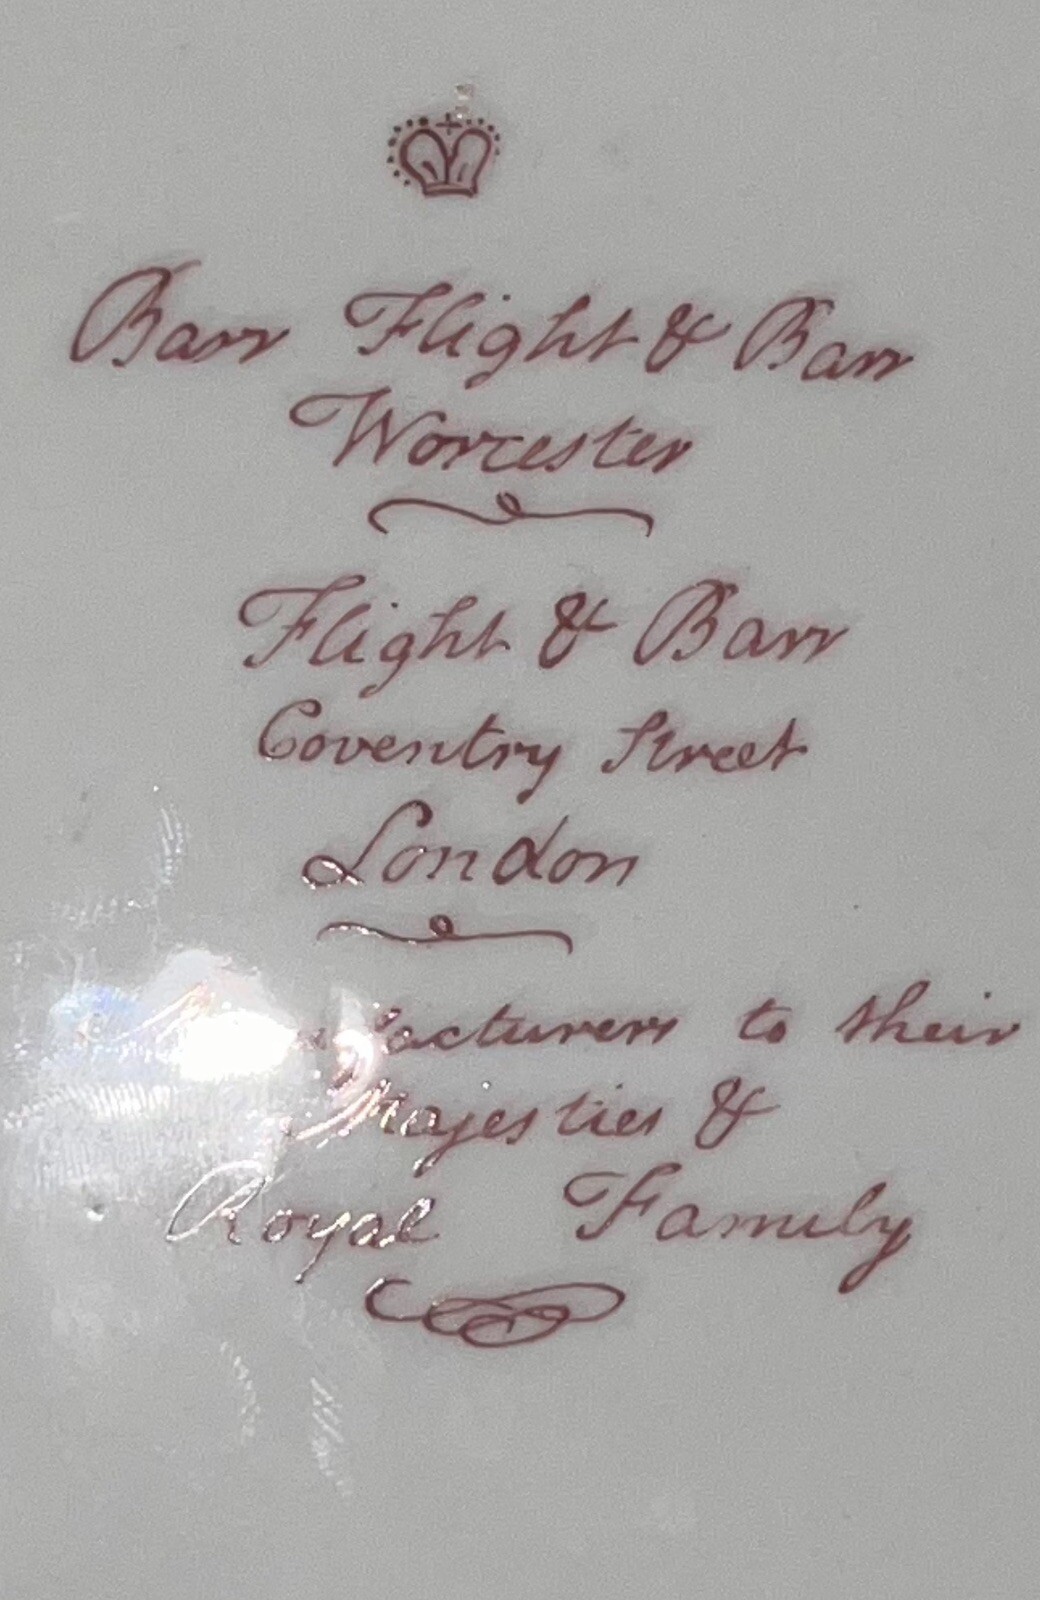 Barr Flight & Barr
Worcester
Flight & Barr
Coventry Street
London
to their
Majesties &
Royal Family